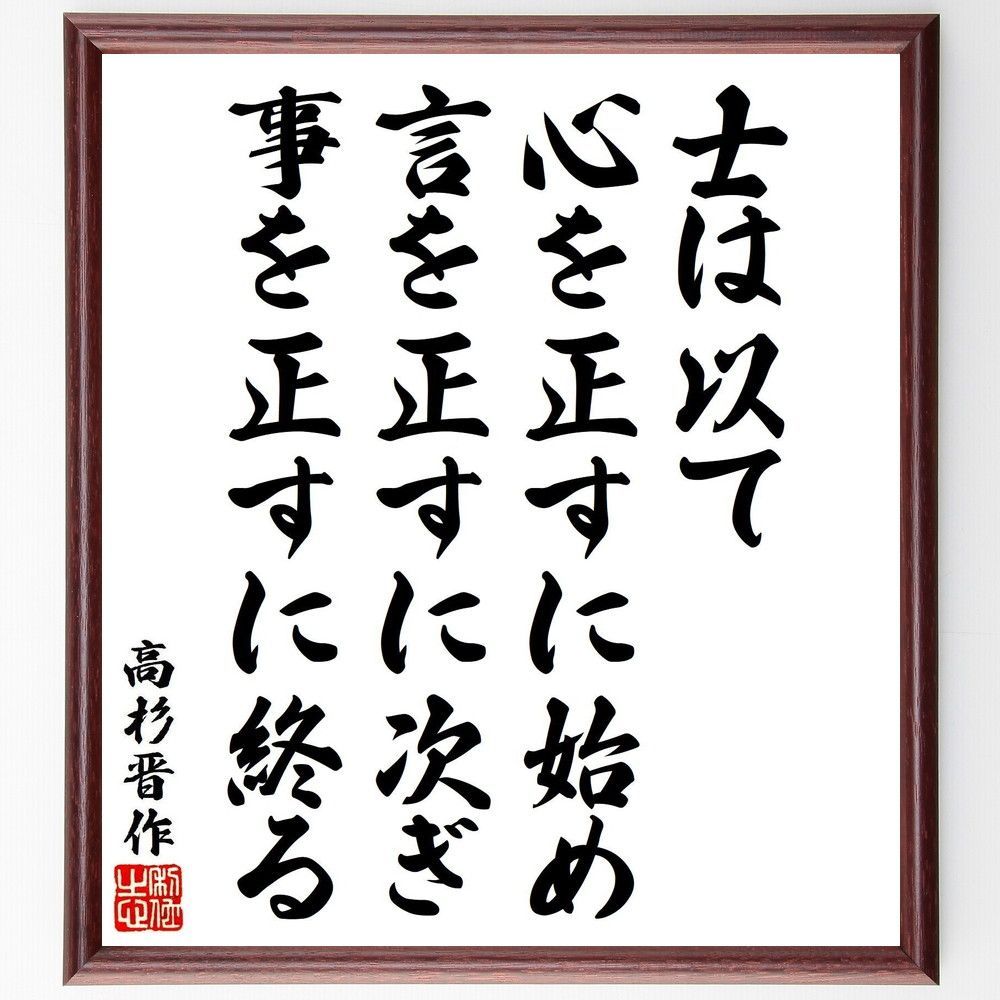 士は以て
心を正すに始め
言を正すに次ぎ
事を正すに終る
高杉晋作